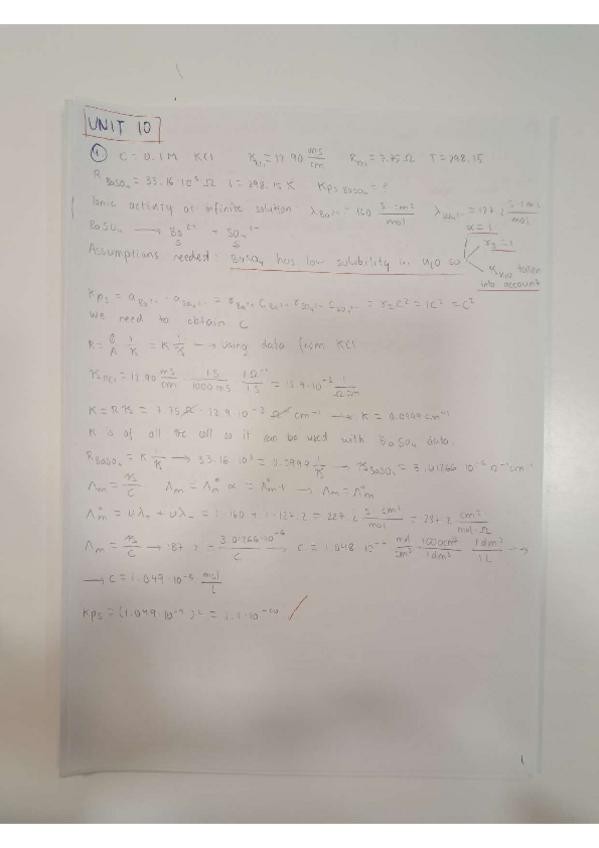 UNIT 10
① C = 0.1 M KCl κKCl = 12.90 mS/cm RKCl = 7.75 Ω T = 298.15
R BaSO4 = 33.16·10³ Ω T = 298.15 K Kps BaSO4 = ?
Ionic activity at infinite solution λBa²⁺ = 160 S·cm²/mol
α = 1
BaSO4 → Ba²⁺ + SO4²⁻
S S
γ± = 1
Assumptions needed: BaSO4 has low solubility in H2O so
κH2O taken
into account
Kps = aBa²⁺ · aSO4²⁻ = γBa²⁺ CBa²⁺ γSO4²⁻ CSO4²⁻ = γ± C² = 1C² = C²
We need to obtain C
R = ℓ/A 1/κ = K 1/κ → using data from KCl
κKCl = 12.90 mS/cm · 1 S/1000 mS · 1 Ω⁻¹/1 S = 12.9·10⁻³ 1/Ω cm
K = R κ = 7.75 Ω · 12.9·10⁻³ Ω⁻¹ cm⁻¹ → K = 0.0999 cm⁻¹
K is of all the cell so it can be used with BaSO4 data.
RBaSO4 = K 1/κ → 33.16·10³ = 0.0999 1/κ → κBaSO4 = 3.01266·10⁻⁶ Ω⁻¹cm⁻¹
Λm = κ/C Λm = Λ°m α = Λ°m · 1 → Λm = Λ°m
Λ°m = νλ₊ + νλ₋ = 1·160 + 1·127.2 = 287.2 S·cm²/mol = 287.2 cm²/mol·Ω
Λm = κ/C → 287.2 = 3.01266·10⁻⁶/C → C = 1.048 mol/cm³ · 1000cm³/1dm³ · 1dm³/1L →
→ C = 1.049·10⁻⁵ mol/L